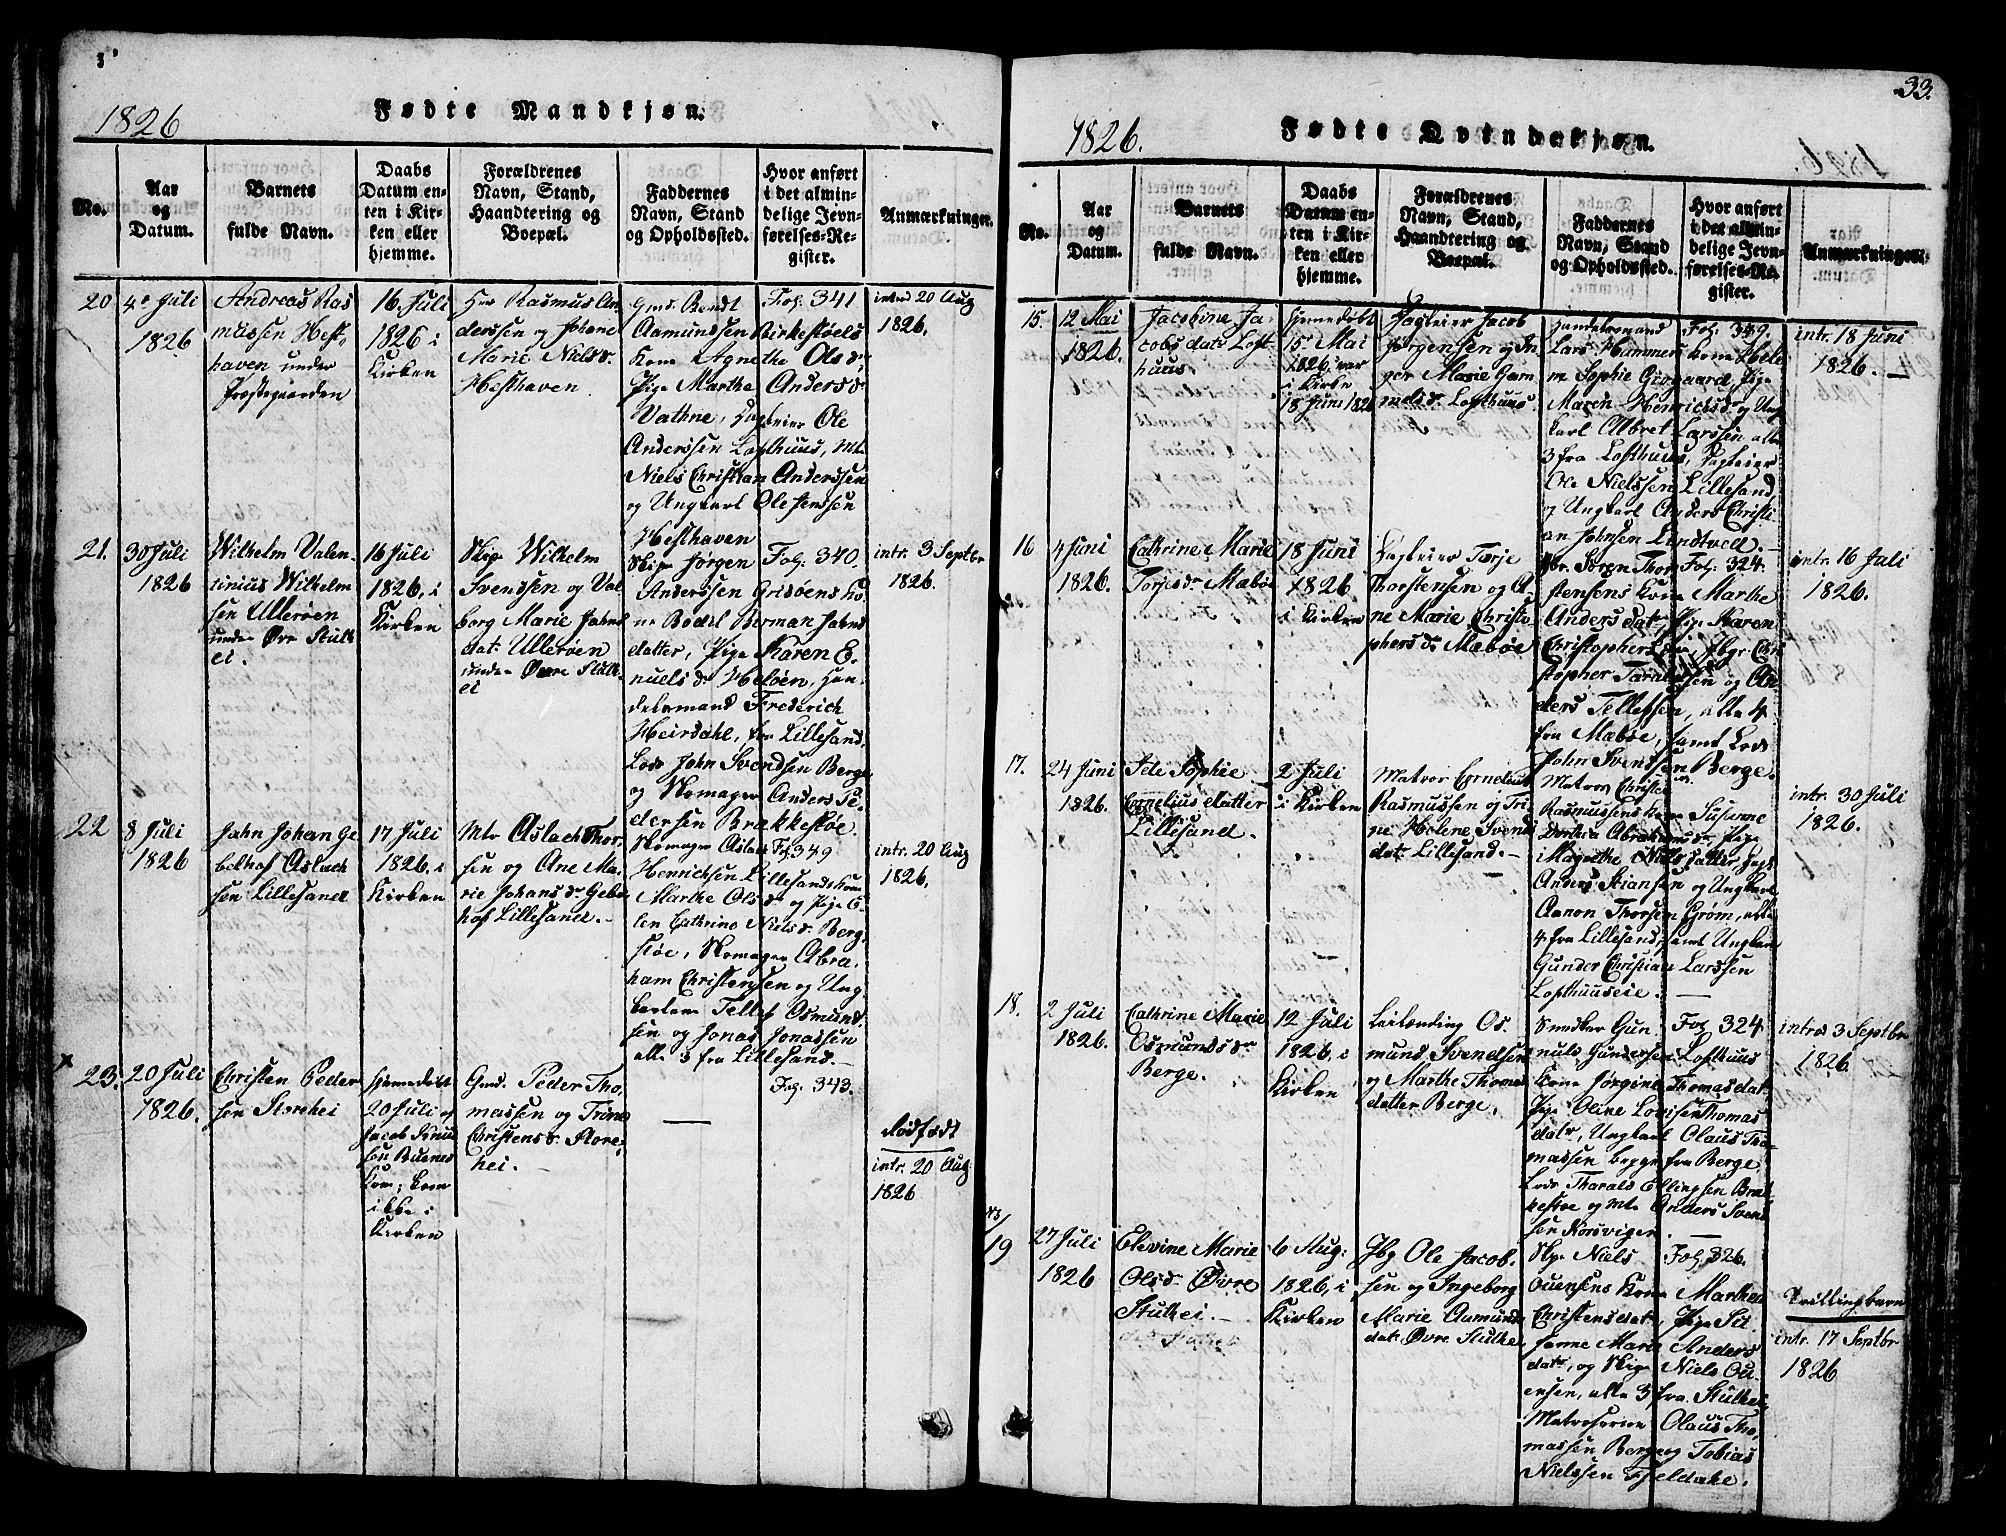 1826
Fødte Mandkjøn.
No.
Aar
og
Datum.
Barnets
fulde Navn.
Daabs
Datum en-
ten i Kir-
ken eller
hjemme.
Forældrenes
Navn, Stand,
Haandtering og
Boepæl.
Faddernes
Navn, Stand
og Opholdssted.
Hvor anført
i det almin-
delige Jevn-
førelses-Re-
gister.
Anmærkninger.
20
4e Juli
1826
Andreas Ras
mussen Hest
haven under
Præstegaarden
16 Juli
1826 i
Kirken
Hr Rasmus An
derssen og Johane
Marie Nielsdr
Hesthaven
Gmd. Bendt
Aamundsen Kirkestoels
Kone Agnethe Olsdr
Pige Marthe Andersdr
Vathne, Dagleier Ole
Anderssen Lofthuus, Mtr
Niels Christian Anderssen
og Ungkarl Ole Jenssen
Hesthaven
Fol. 341
intrd 20 Aug
1826.
21.
30 Juli
1826
Wilhelm Valen-
tinius Wilhelm
sen Ulleröen
under Øvre Stulk
ei.
16 Juli
1826, i
Kirken
Skip Wilhelm
Svendsen og Val
borg Marie Jahns
dat. Ulleröen
under Øvre Stulk
ei
Skipr Jørgen
Anderssen Grisøens Ko
ne Bodel Berman Jahns
datter, Pige Karen E-
nuelsdr Helöen, Han-
delsmand Frederich
Heirdahl, fra Lillesand
Lods John Svendsen Berge
og Skomager Anders Pe
dersen Brækkestøe.
Fol. 340.
intr. 3 Septbr
1826.
22
8 Juli
1826
Jahn Johan Ge
belhof Aslach
sen Lillesand
17 Juli
1826. i
Kirken
Mtr Aslach Thor
sen og Ane Ma-
rie Johansdr Gebel
hof Lillesand.-
Skomager Aslach
Henrichsen Lillesands Kone
Marthe Olsdr og Pige E-
len Cathrine Nielsdr Berg
støe, Skomager Abra
ham Christensen og Ung
karlene Tellef Osmund
sen og Jonas Jonassen
alle 3 fra Lillesand.-
Fol 349
intr. 20 Aug
1826.
23.
20 Juli
1826.
Christen Peder
sen Storehei
hjemedøbt
20 Juli af
Jacob Knud
sen
Kone; kom
ikke i
Kirken
Gmd. Peder Tho
massen og Trine
Christensdr Store
hei. -
Fol. 343.
dødfødt
intr. 20 Aug
1826
33.
1826.
Fødte Qvindekjøn.
No.
Aar
og
Datum.
Barnets
fulde Navn.
Daabs
Datum en-
ten i Kir-
ken eller
hjemme.
Forældrenes
Navn, Stand,
Haandtering og
Boepæl.
Faddernes
Navn, Stand
og Opholdssted.
Hvor anført
i det almin-
delige Jevn-
førelses-Re-
gister.
Anmærkninger.
15.
12 Mai
1826.
Jacobine Ja-
cobs datr Loft
huus
hjemedøbt
15 Mai
1826, var
i Kirke
18 Juni 1826
Dagleier Jacob
Jørgensen og In
ger Marie Gam
melsdr Lofthuus
Handelsmand
Lars Hammers Kone Hele
ne Sophie Pige
Maren Henrichsdr og Ung
karl Albret Larssen, alle
3 fra Lofthuus, Dagleier
Ole Nielssen Lillesand,
og Ungkarl Anders Christi
an Johnsen Lindtved.
Fol. 339.
intr. 18 Juni
1826.
16
4 Juni
1826.
Cathrine Marie
Torjesdr Mæbøe
18 Juni
1826
i Kirken
Dagleier Tarje
Thorstensen og A-
ne Marie Christo
phersdr Mæbøe
Søren Thor
stensens Kone Marthe
Anders datr, Pige Karen
Christophersdr, Jbgr Chri
stopher Tarald sen og An
ders Tellefsen, alle 4
fra Mæbøe, samt Lods
John Svendsen Berge.
Fol. 324.
intr. 16 Juli
1826.
17.
24 Juni
1826.
Idele Sophie
Cornelius datter
Lillesand.
2 Juli
i Kirken
Matros Cornelius
Rasmussen og Tri
ne Helene Svend
datr Lillesand.-
Matros Christen
Rasmussens Kone Susanne
Dorthea Abrahamsdr Pige
Magrethe Nielsdatter,
Anders Stiansen og Ungkarl
Aanon Thorsen Grøm, alle
4 fra Lillesand, samt Ungkarl
Gunder Christian Larssen
Lofthuuseie.
intr. 30 Juli
1826.
18.
2 Juli
1826.
Cathrine Marie
Osmundsdr
Berge.
12 Juli
1826, i
Kirken
Leilending Os
mund Svendsen
og Marthe Thomas
datter Berge.
Snedker Gun
nuls Gundersen Lofthuus
Kone Jørgine Thomasdat,
Pige Oline Lovise Thomas
datr, Ungkarl Claus Tho
massen begge fra Berge
Lods Tharald Ellingsen Bræk
kestøe og Mtr Anders Svend
sen Korsvigen.
Fol 324
intrd 3 Septbr
1826.
19
27 Juli
1826
Elevine Marie
Olsdr Øvre
Stulkei.-
6 Aug:
1826, i
Kirken
Jbg Ole Jacob
sen og Ingeborg
Marie Aamunds
datr Øvre Stulkei
Skpr Niels
Ouensens Kone Marthe
Christensdatr, Pige
Janne Marie Anders
datr, og Skipr Niels Ou
ensen, alle 3 fra Stulkei
Matroserne Claus Tho
massen Berge og Tobias
Nielssen Fjeldahl.
Fol. 326.
Tvillingbarn
intr. 17 Septbr
1826